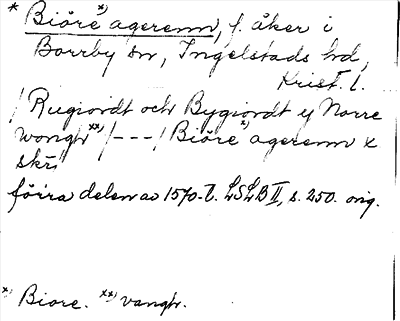 * Biöre x) agerenn, f. åker i
Borrby sn, Ingelstads hd,
Krist. l.
/ Rugiordt och Bygiordt y Norre
wongh xx) /---/ Biöre x) agerenn x
skr/
förra delen av 1570-t. LSLB II, s. 250. orig.
x) Biore. xx) vangh.